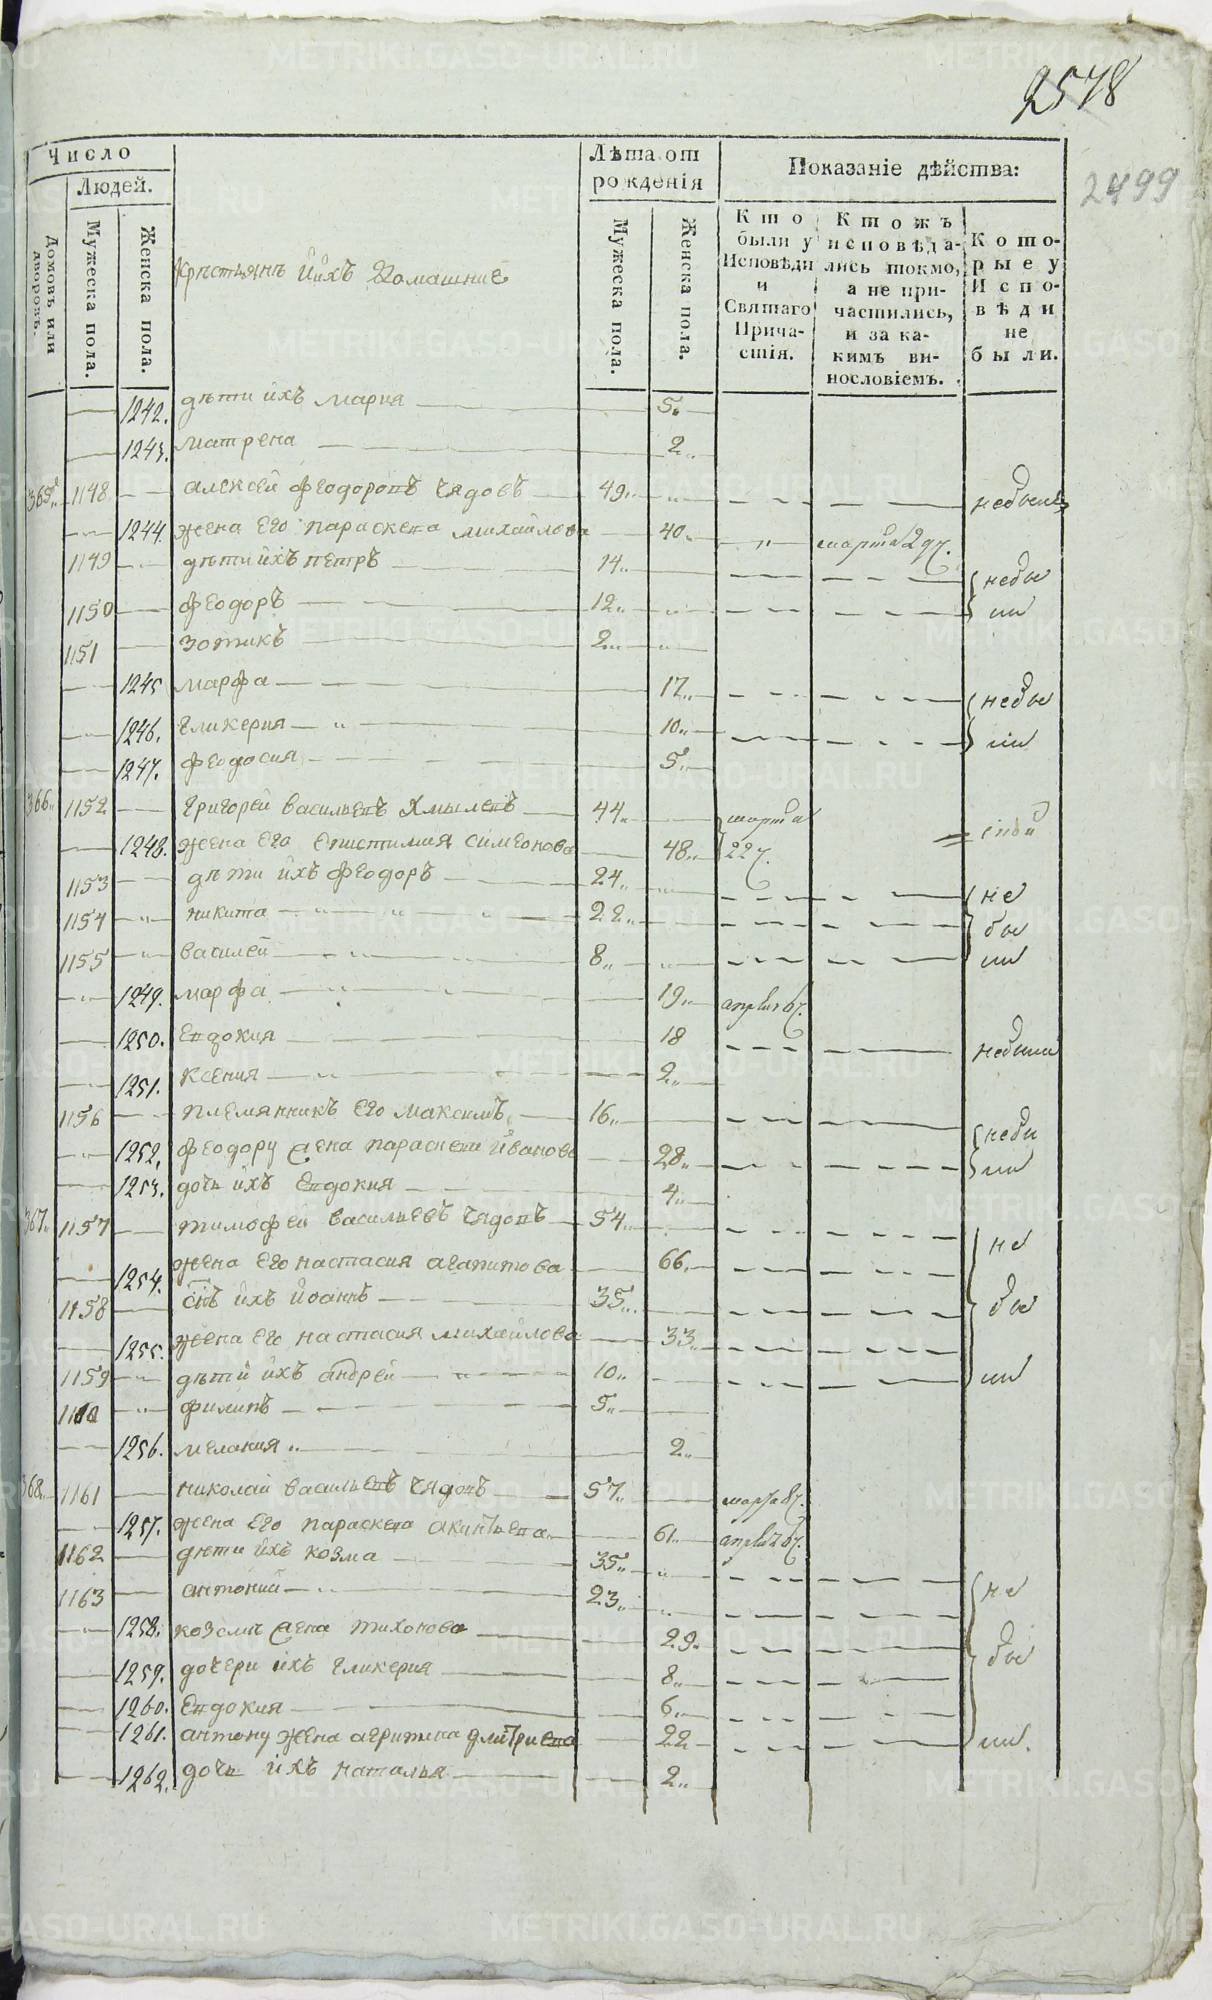 2578
2499
Число
Людей.
Домовъ или дворовъ.
Мужеска пола.
Женска пола.
Крестьянъ Ийхъ Домашние
Лѣта от рожденія
Мужеска пола.
Женска пола.
Показаніе дѣйства:
Кто были у Исповѣди и Святаго Причастія.
Ктожъ исповѣдались токмо, а не причастились, и за какимъ винословіемъ.
Которые у Исповѣди не были.
1242. дѣти ихъ мария 5
1243. матрена 2
365 1148 алексей феодоровъ чядовъ 49 небылъ
1244. жена его параскева михайлова 40 марта 29 ч.
1149 дѣти ихъ петръ 14 небы
1150 феодоръ 12 ли
1151 зотикъ 2
1245 марфа 17 небы
1246. гликерия 10 ли
1247. феодосия 5
366 1152 григорей васильевъ хмылевъ 44 марта
1248. жена его епистимия симеонова 48 22 ч.
1153 дѣти ихъ феодоръ 24 не
1154 никита 22 бы
1155 василей 8 ли
1249. марфа 19 апреля 6 ч.
1250. евдокия 18 небыли
1251. ксения 2
1156 племянникъ его максимъ 16 небы
1252. феодору жена параскева иванова 28 ли
1253. дочь ихъ евдокия 4
367 1157 тимофей васильевъ чядовъ 54 не
1254. жена его настасия агапитова 66
1158 снъ ихъ иоаннъ 35 бы
1255. жена его настасия михайлова 33
1159 дѣти ихъ андрей 10 ли
1160 филипъ 5
1256. мелания 2
368 1161 николай васильевъ чядовъ 57 марта 8 ч.
1257. жена его параскева акинѳьева 61 апреля 6 ч.
1162 дѣти ихъ козма 35
1163 антоний 23 не
1258. козмы жена тихонова 29
1259. дочери ихъ гликерия 8 бы
1260. евдокия 6
1261. антону жена агрипина дмитриева 22 ли.
1262. дочь ихъ наталья 2
METRIKI.GASO-URAL.RU